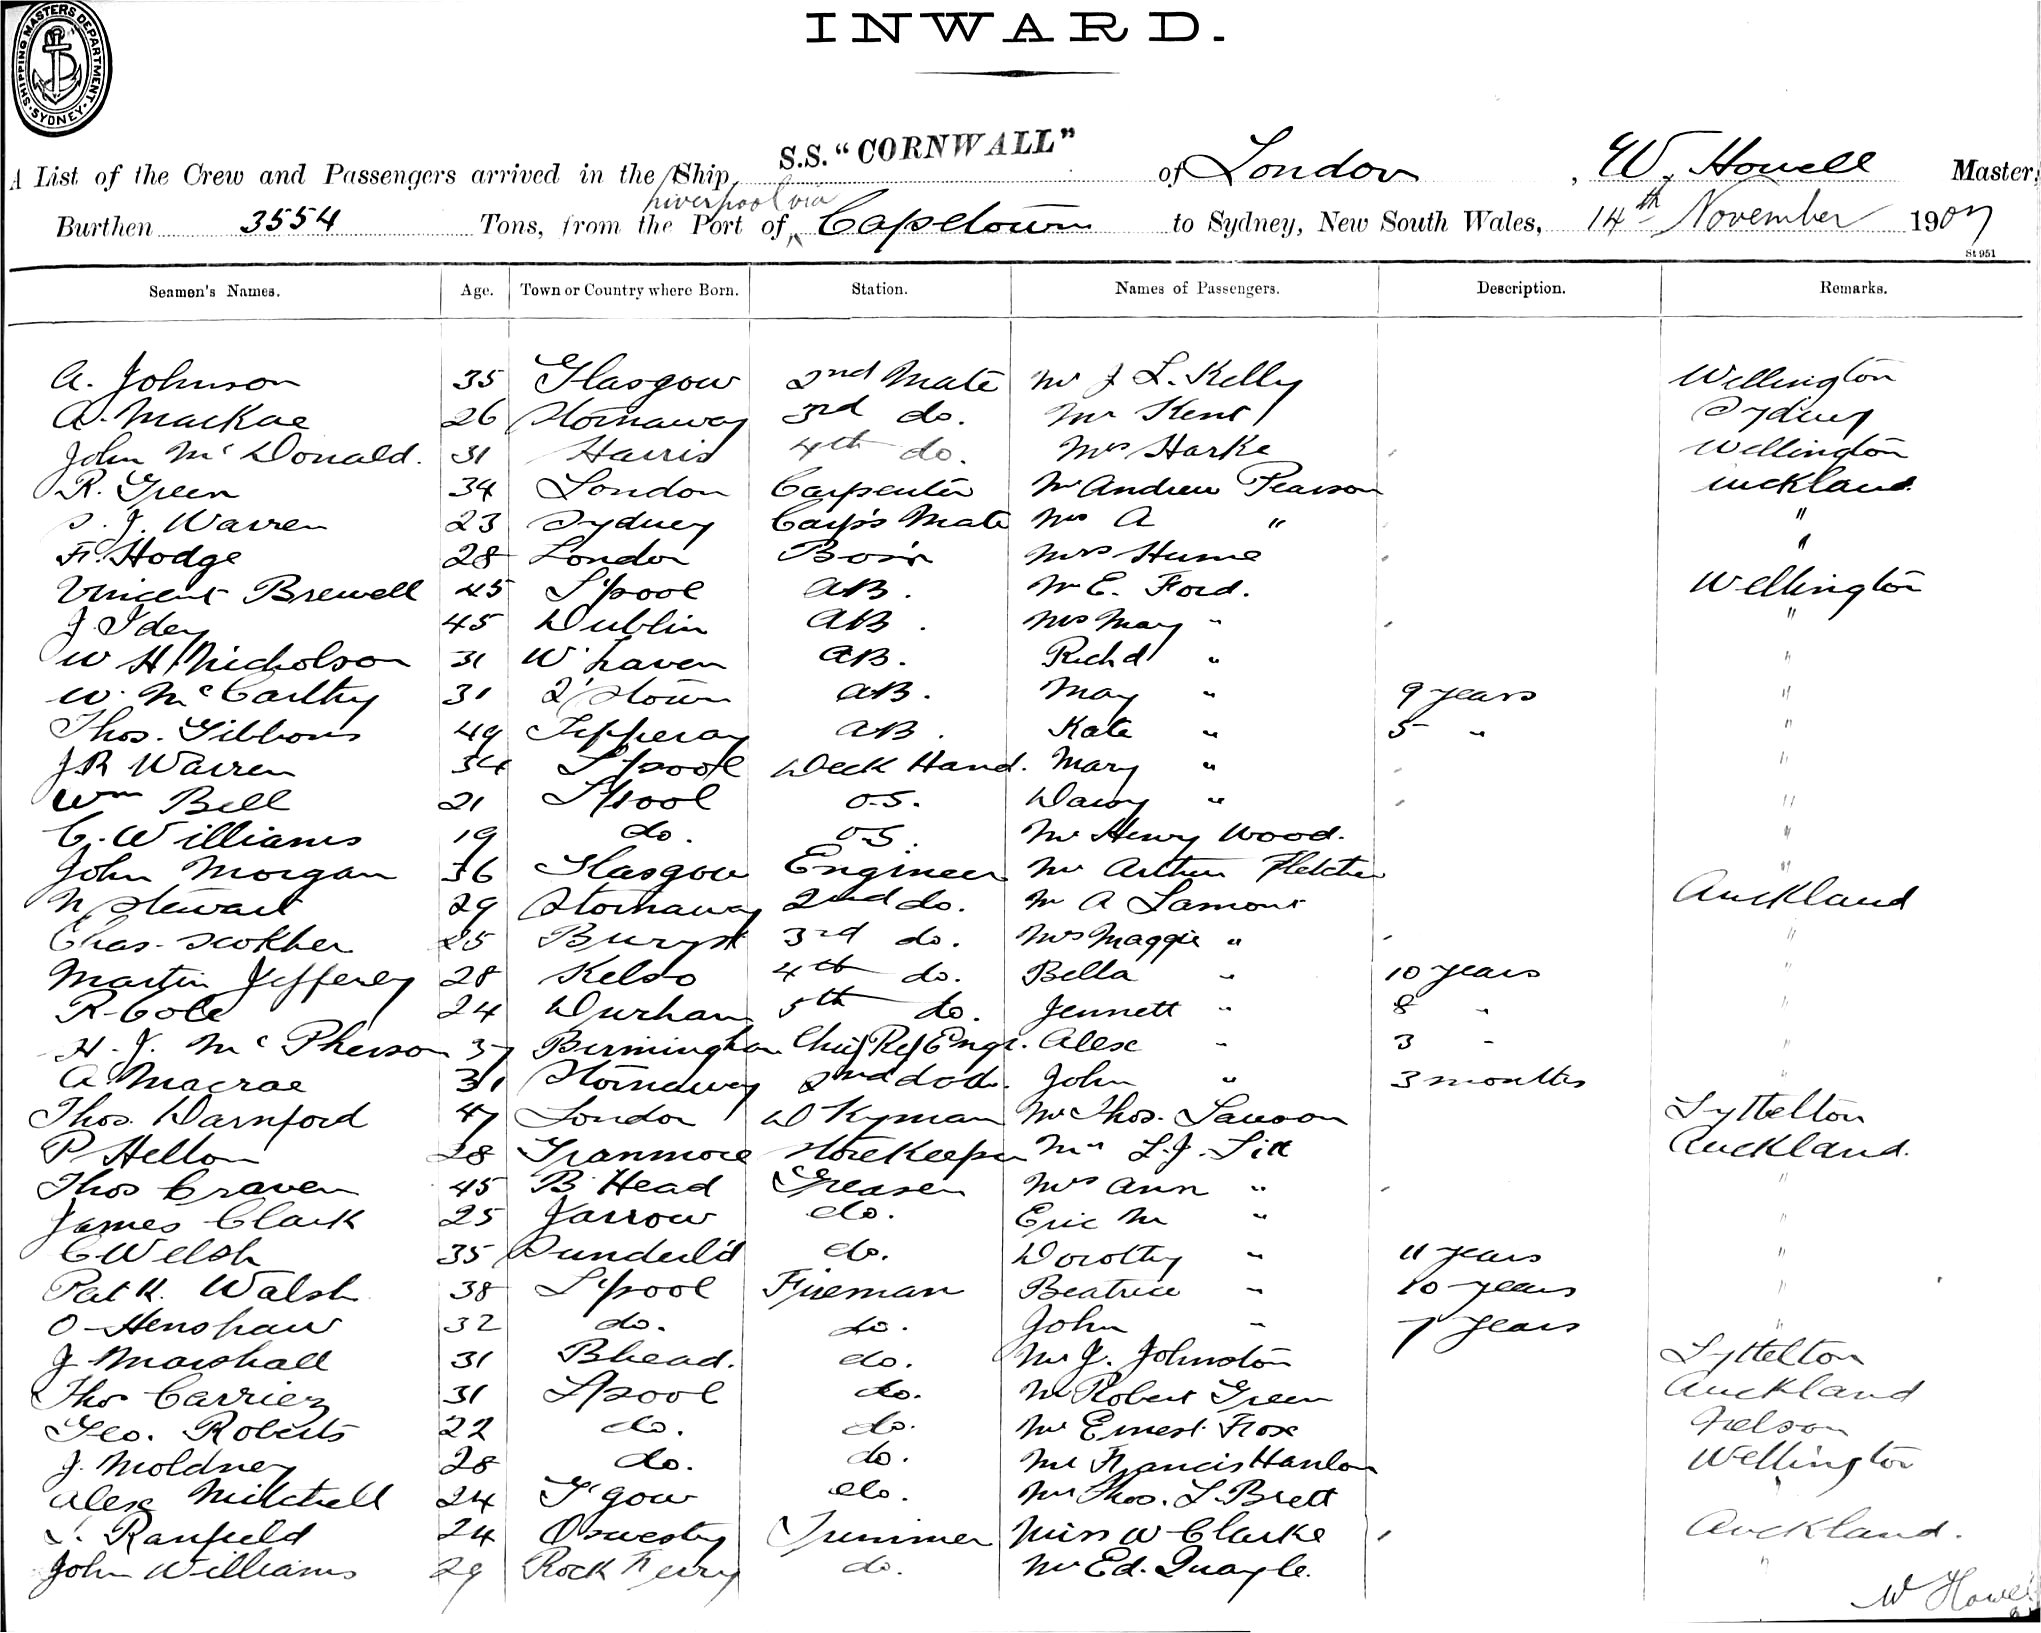 SHIPPING MASTERS DEPARTMENT SYDNEY
INWARD.
S.S. "CORNWALL"
A List of the Crew and Passengers arrived in the Ship, of London, W. Howell Master,
Liverpool via
Burthen 3554 Tons, from the Port of Capetown to Sydney, New South Wales, 14th November 1907
St 951
Seamen's Names. Age. Town or Country where Born. Station. Names of Passengers. Description. Remarks.
A. Johnson 35 Glasgow 2nd Mate Mr J L. Kelly Wellington
A. MacKae 26 Stornaway 3rd do. Mr Kent Sydney
John McDonald. 31 Harris 4th do. Mrs Harke Wellington
R. Green 34 London Carpenter Mr Andrew Pearson uckland
J. Warren 23 Sydney Carp's Mate Mrs A " "
F. Hodge 28 London Bos'n Mrs Hume "
Vincent Brewell 45 L'pool AB. Mr E. Ford. Wellington
J. Idey 45 Dublin AB. Mrs May " "
W H Nicholson 31 W'haven AB. Richd " "
W. McCarthy 31 Q'stown AB. May " 9 years "
Thos. Gibbons 49 Tipperay AB. Kate " 5 " "
JR Warren 34 L'pool Deck Hand. Mary " "
Wm Bell 21 L'pool O.S. Daisy " "
C. Williams 19 do. O.S. Mr Henry Wood. "
John Morgan 36 Glasgow Engineer Mr Arthur Fletcher "
N Stewart 29 Stornaway 2nd do. Mr A Lamont Auckland
Chas. 25 3rd do. Mrs Maggie " "
Martin Jefferey 28 Kelso 4th do. Bella " 10 years "
R. Cole 24 Durham 5th do. Jennett " 8 " "
H. J. McPherson 37 Birmingham Chief Ref Engr. Alex " 3 " "
A Macrae 31 Stornaway 2nd do do. John " 3 months "
Thos. Darnford 47 London D Kyman Mr Thos. Lawson Lyttelton
P Helton 28 Tranmore Storekeeper Mr L.J. Auckland.
Thos Craven 45 B'Head Greaser Mrs Ann " "
James Clark 25 Jarrow do. Eric M " "
C Welsh 35 Sunderl'd do. Dorothy " 11 years "
Patk. Walsh 38 L'pool Fireman Beatrice " 10 years "
O Henshaw 32 do. do. John " 7 years "
J Marshall 31 Bhead. do. Mr J. Johnston Lyttelton
Thos Carrier 31 L'pool do. Mr Robert Green Auckland
Geo. Roberts 22 do. do. Mr Ernest Frox Nelson
J. Moldney 28 do. do. Mr Francis Hanlon Wellington
Alex Mitchell 24 G'gow do. Mr Thos. L. Brett "
Ranfield 24 Oswestry Trimmer Miss W Clarke Auckland.
John Williams 29 Rock Ferry do. Mr Ed. Quayle. "
W Howell